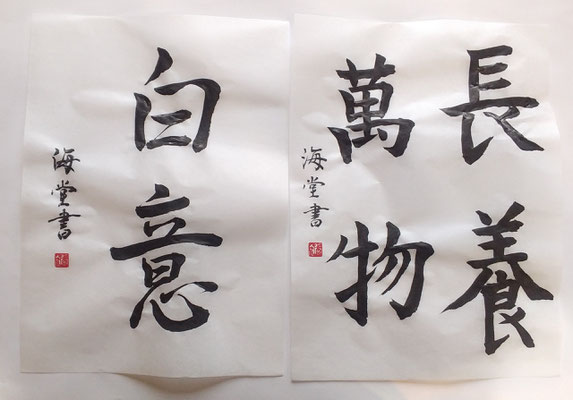 長養
萬物
海堂書
白意
海堂書